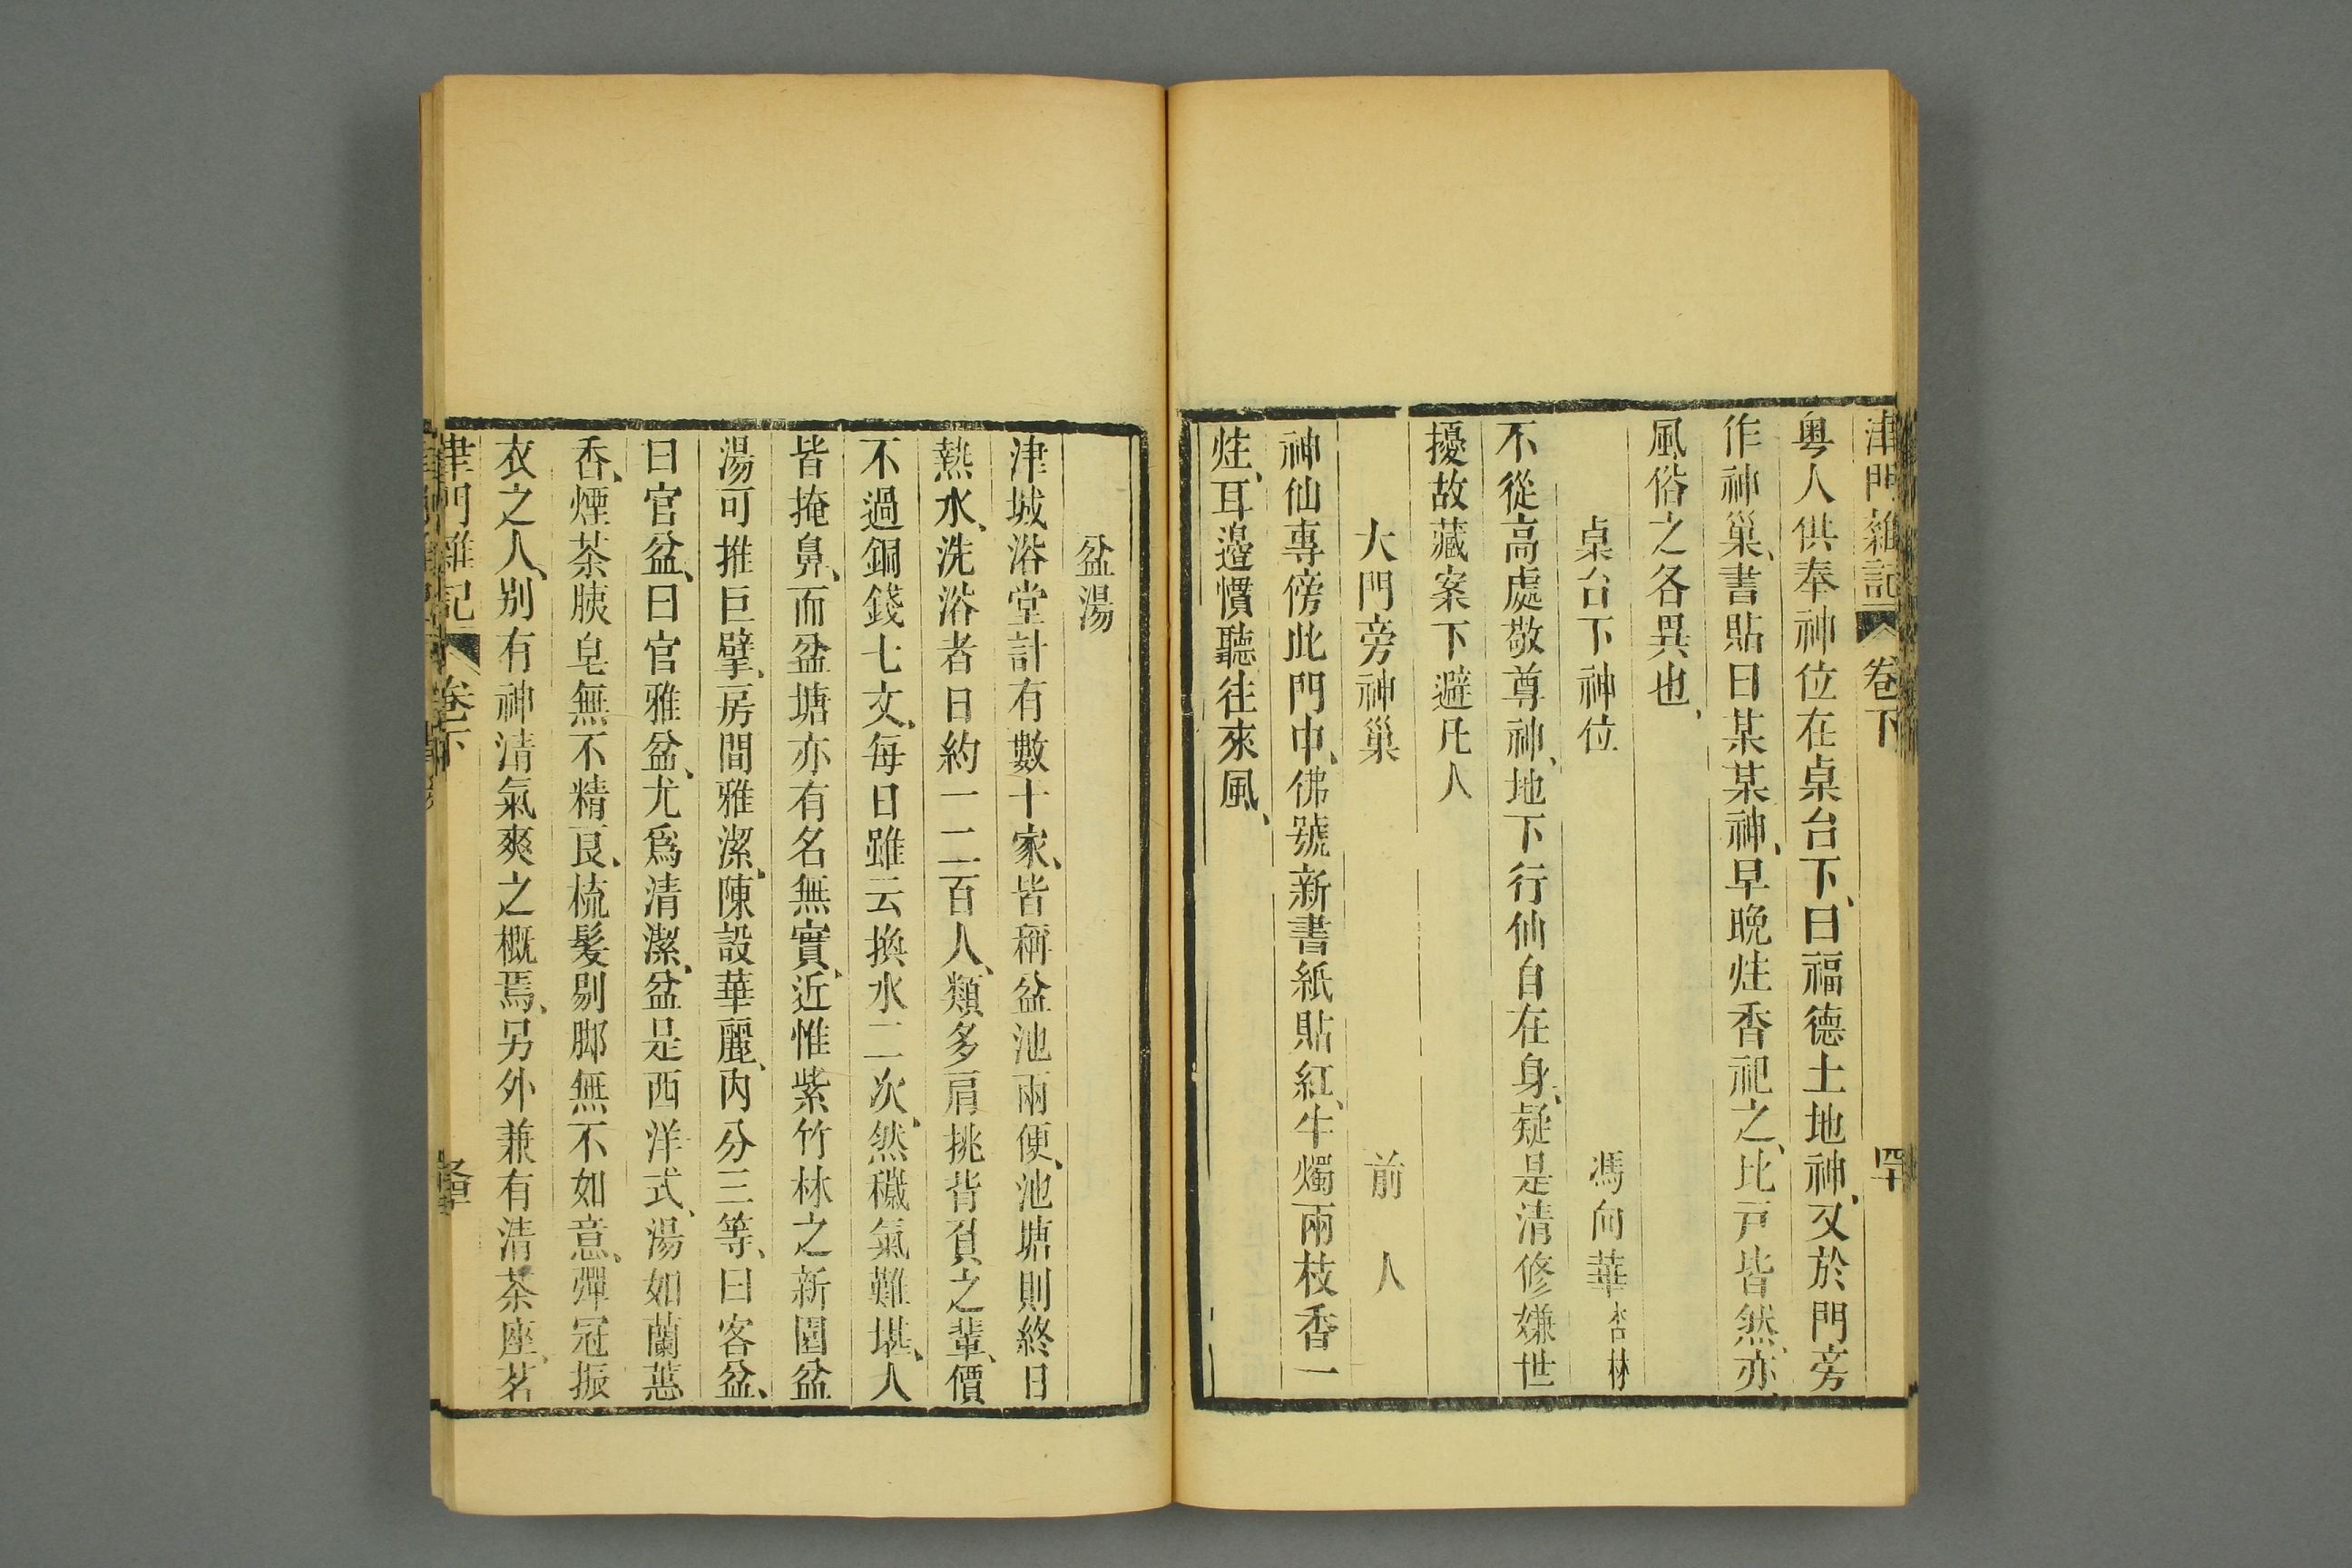 津門雜記 卷下 四十
粤人供奉神位在桌台下、曰福德土地神、又於門旁
作神巢、書貼曰某某神、早晚炷香祀之、比戸皆然、亦
風俗之各異也、
桌台下神位 馮向華杏林
不從高處敬尊神、地下行仙自在身、疑是清修嫌世
擾故藏案下避凡人
大門旁神巢 前人
神仙專傍此門中、彿號新書紙貼紅、牛燭兩枝香一
炷、耳邊慣聽往來風、
盆湯
津城浴堂計有數十家、皆稱盆池兩便、池塘則終日
熱水、洗浴者日約一二百人、類多肩挑背負之輩、價
不過銅錢七文、每日雖云換水二次、然穢氣難堪、人
皆掩鼻、而盆塘亦有名無實、近惟紫竹林之新園盆
湯可推巨擘、房間雅潔、陳設華麗、内分三等、曰客盆、
曰官盆、曰官雅盆、尤爲清潔、盆是西洋式、湯如蘭蕙
香、煙茶胰皂無不精良、梳髮剔脚無不如意、彈冠振
衣之人、别有神清氣爽之概焉、另外兼有清茶座、茗
津門雜記 卷下